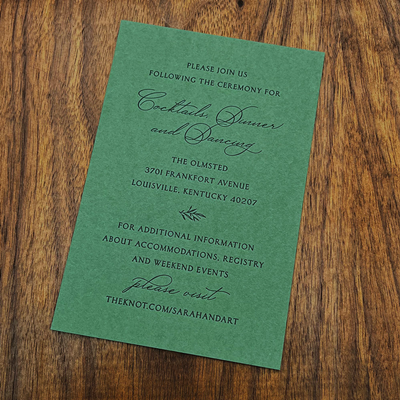 PLEASE JOIN US
FOLLOWING THE CEREMONY FOR
Cocktails, Dinner
and Dancing
THE OLMSTED
3701 FRANKFORT AVENUE
LOUISVILLE, KENTUCKY 40207
FOR ADDITIONAL INFORMATION
ABOUT ACCOMMODATIONS, REGISTRY
AND WEEKEND EVENTS
please visit
THEKNOT.COM/SARAHANDART